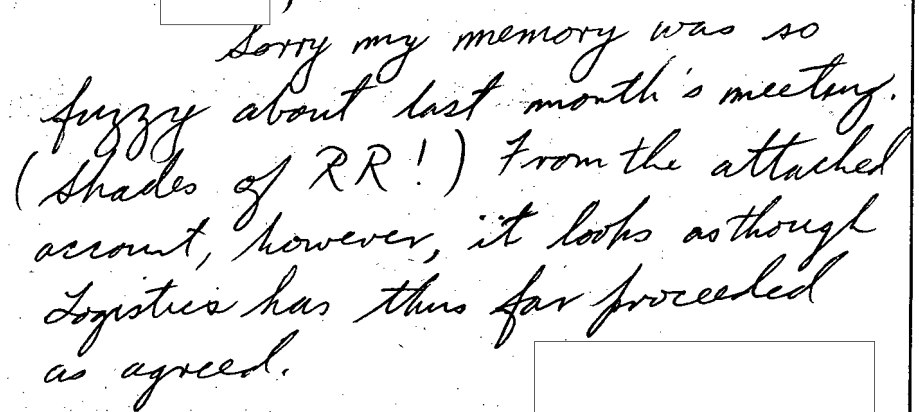 ,
Sorry my memory was so
fuzzy about last month's meeting.
(Shades of RR!) From the attached
account, however, it looks as though
Logistics has thus far proceeded
as agreed.